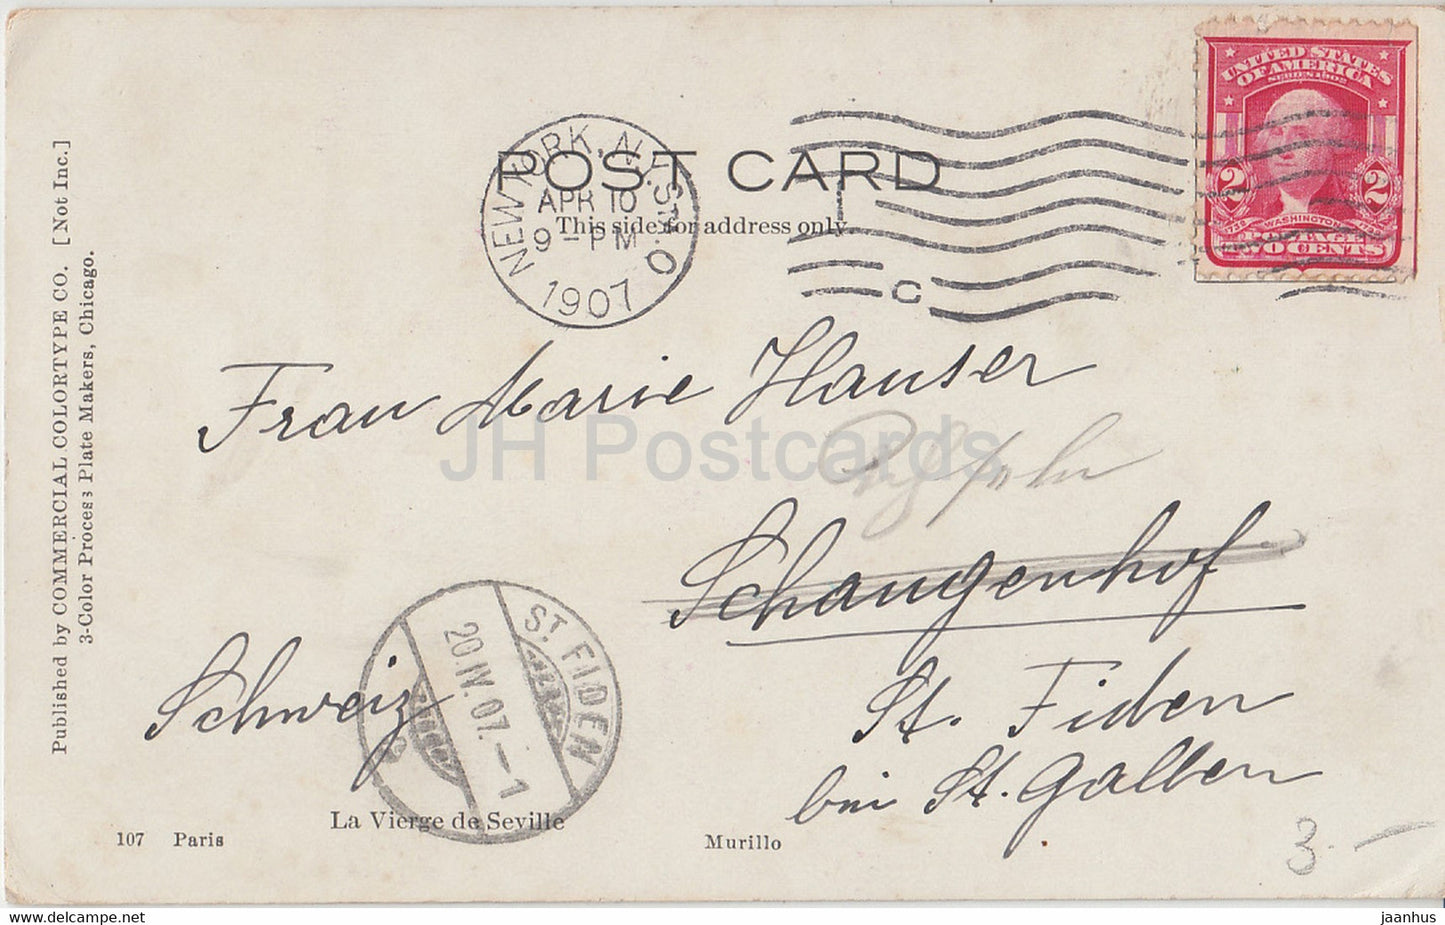 POST CARD
This side for address only.
NEW YORK, N.Y. STA. O
APR 10
9-PM
1907
C
UNITED STATES
OF AMERICA
SERIES 1902
2 2
1732 WASHINGTON 1799
POSTAGE
TWO CENTS
Published by COMMERCIAL COLORTYPE CO. [Not Inc.]
3-Color Process Plate Makers, Chicago.
Frau Marie Hauser
JH Postcards
Schaugenhof
St. Fiden
bei St. Gallen
Schweiz
ST. FIDEN
20.IV.07.–1
La Vierge de Seville
107 Paris
Murillo
3.–
jaanhus